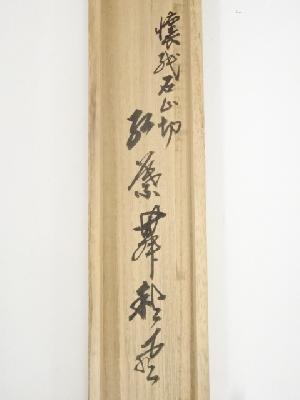 懐紙石山切
紅葉舞秋風